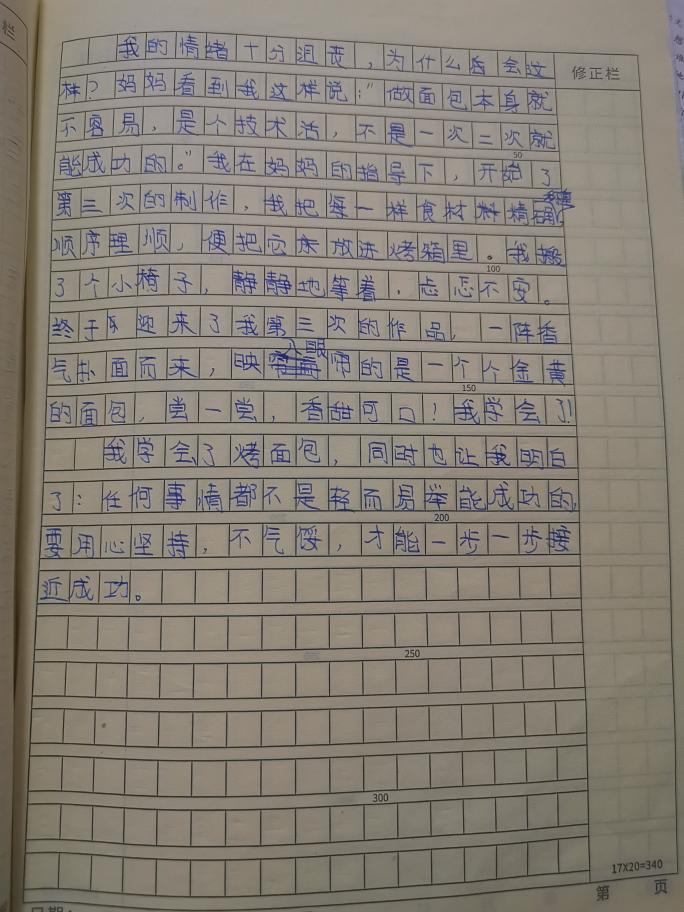 栏
修正栏
我的情绪十分沮丧，为什么会这
样？妈妈看到我这样说：“做面包本身就
不容易，是个技术活，不是一次二次就
50
能成功的。”我在妈妈的指导下，开始了
第三次的制作，我把每一样食材精确，
顺序理顺，便把它放进烤箱里。我搬
100
了个小椅子，静静地等着，忐忑不安。
终于迎来了我第三次的作品，一阵香
气扑面而来，映入眼帘的是一个个金黄
150
的面包，尝一尝，香甜可口！我学会了！
我学会了烤面包，同时也让我明白
了：任何事情都不是轻而易举能成功的，
200
要用心坚持，不气馁，才能一步一步接
近成功。
250
300
17X20=340
第 页